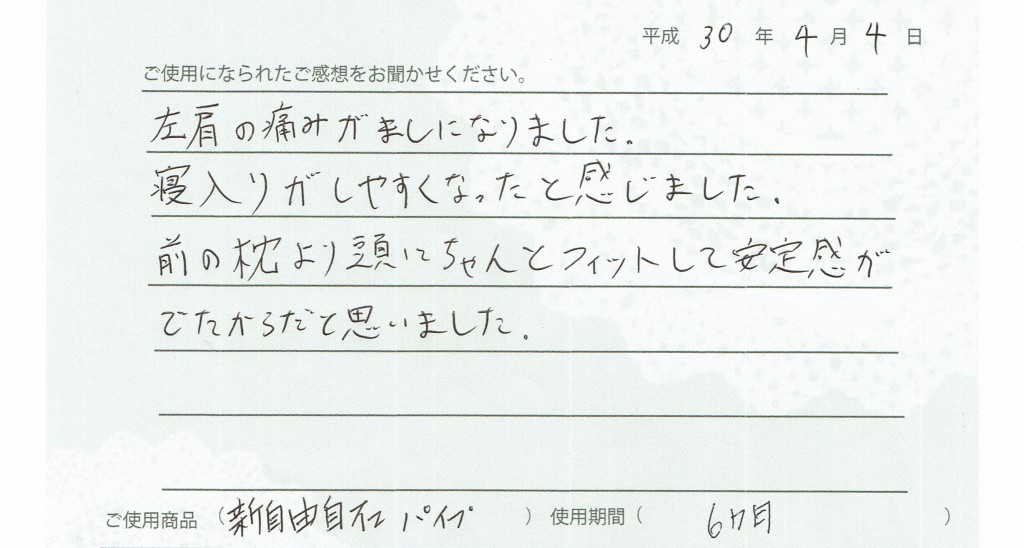 平成 30 年 4 月 4 日
ご使用になられたご感想をお聞かせください。
左肩の痛みがましになりました。
寝入りがしやすくなったと感じました。
前の枕より頭にちゃんとフィットして安定感が
でたからだと思いました。
ご使用商品 (新自由自在 パイプ ) 使用期間 ( 6ヵ月 )